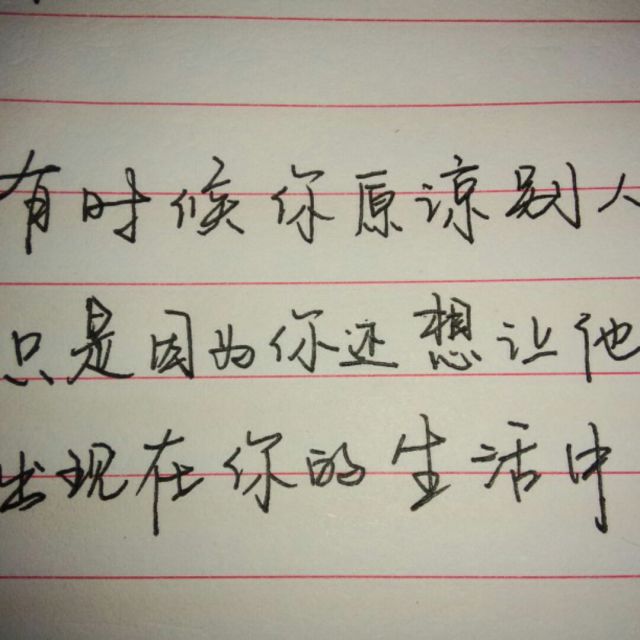 有时候你原谅别人
只是因为你还想让他
出现在你的生活中